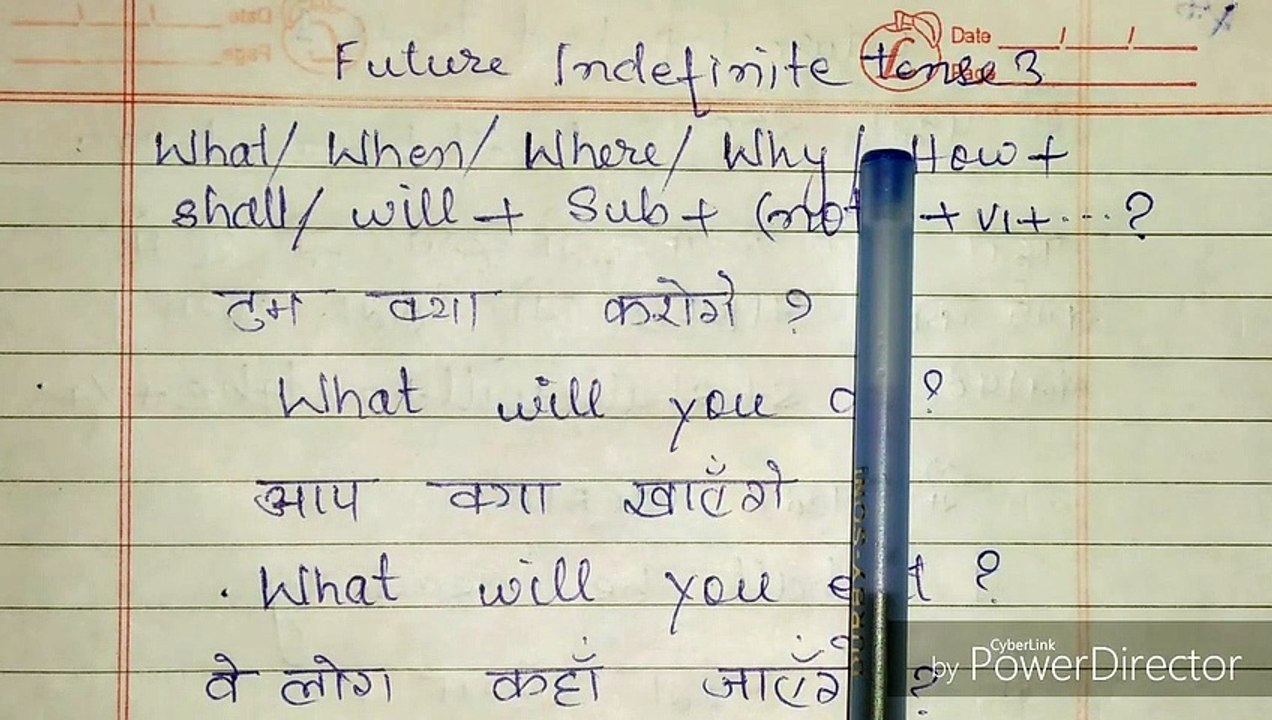 Date
Future Indefinite tense 3
What/ When/ Where/ Why/ How +
shall/ will + Sub + (not + V1 + ....?
तुम क्या करोगे ?
What will you ?
आप क्या खाएँगे
What will you ?
वे लोग कहाँ ?
CyberLink
by PowerDirector